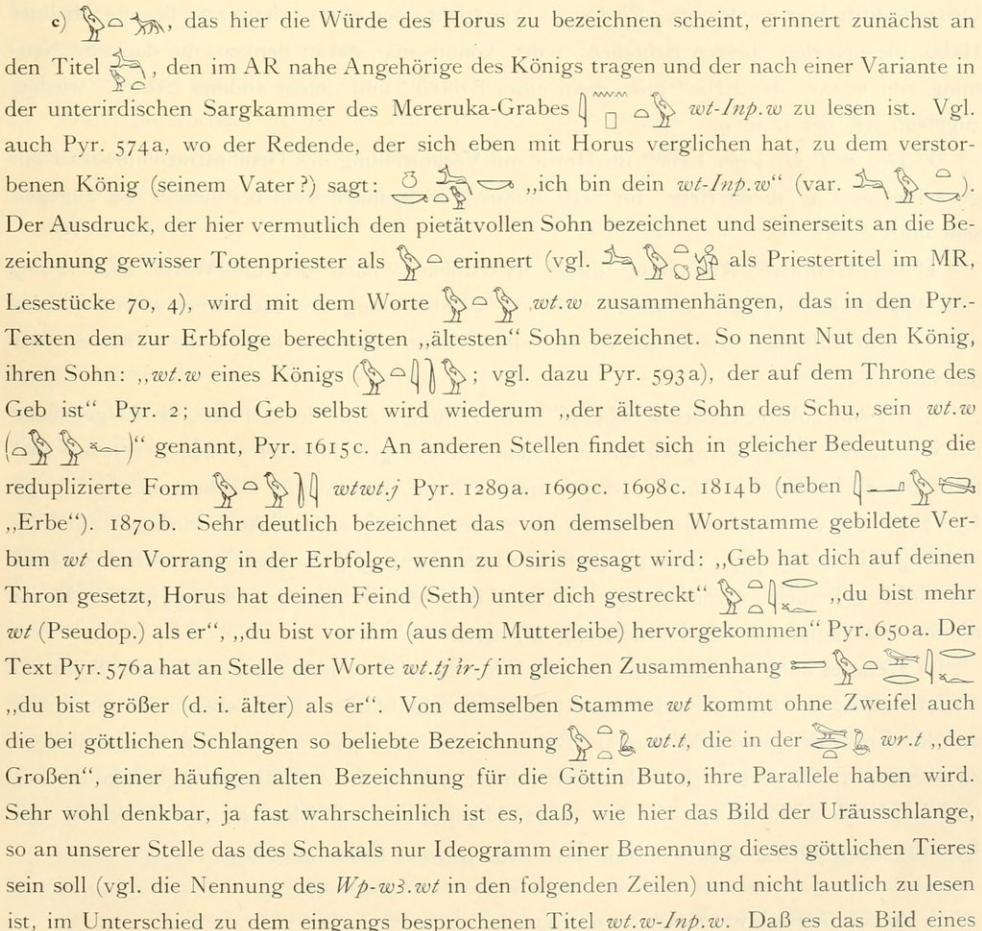 c) , das hier die Würde des Horus zu bezeichnen scheint, erinnert zunächst an
den Titel , den im AR nahe Angehörige des Königs tragen und der nach einer Variante in
der unterirdischen Sargkammer des Mereruka-Grabes wt-Inp.w zu lesen ist. Vgl.
auch Pyr. 574a, wo der Redende, der sich eben mit Horus verglichen hat, zu dem verstor-
benen König (seinem Vater?) sagt: „ich bin dein wt-Inp.w“ (var. ).
Der Ausdruck, der hier vermutlich den pietätvollen Sohn bezeichnet und seinerseits an die Be-
zeichnung gewisser Totenpriester als 𓅱𓏏 erinnert (vgl. als Priestertitel im MR,
Lesestücke 70, 4), wird mit dem Worte 𓅱𓏏𓅱 wt.w zusammenhängen, das in den Pyr.-
Texten den zur Erbfolge berechtigten „ältesten“ Sohn bezeichnet. So nennt Nut den König,
ihren Sohn: „wt.w eines Königs ( ; vgl. dazu Pyr. 593a), der auf dem Throne des
Geb ist“ Pyr. 2; und Geb selbst wird wiederum „der älteste Sohn des Schu, sein wt.w
(𓏏𓅱𓅱𓆑)“ genannt, Pyr. 1615c. An anderen Stellen findet sich in gleicher Bedeutung die
reduplizierte Form wtwt.j Pyr. 1289a. 1690c. 1698c. 1814b (neben
„Erbe“). 1870b. Sehr deutlich bezeichnet das von demselben Wortstamme gebildete Ver-
bum wt den Vorrang in der Erbfolge, wenn zu Osiris gesagt wird: „Geb hat dich auf deinen
Thron gesetzt, Horus hat deinen Feind (Seth) unter dich gestreckt“ 𓅱𓏏𓏏𓇋𓂋𓆑 „du bist mehr
wt (Pseudop.) als er“, „du bist vor ihm (aus dem Mutterleibe) hervorgekommen“ Pyr. 650a. Der
Text Pyr. 576a hat an Stelle der Worte wt.tj ỉr-f im gleichen Zusammenhang
„du bist größer (d. i. älter) als er“. Von demselben Stamme wt kommt ohne Zweifel auch
die bei göttlichen Schlangen so beliebte Bezeichnung wt.t, die in der wr.t „der
Großen“, einer häufigen alten Bezeichnung für die Göttin Buto, ihre Parallele haben wird.
Sehr wohl denkbar, ja fast wahrscheinlich ist es, daß, wie hier das Bild der Uräusschlange,
so an unserer Stelle das des Schakals nur Ideogramm einer Benennung dieses göttlichen Tieres
sein soll (vgl. die Nennung des Wp-wꜣ.wt in den folgenden Zeilen) und nicht lautlich zu lesen
ist, im Unterschied zu dem eingangs besprochenen Titel wt.w-Inp.w. Daß es das Bild eines